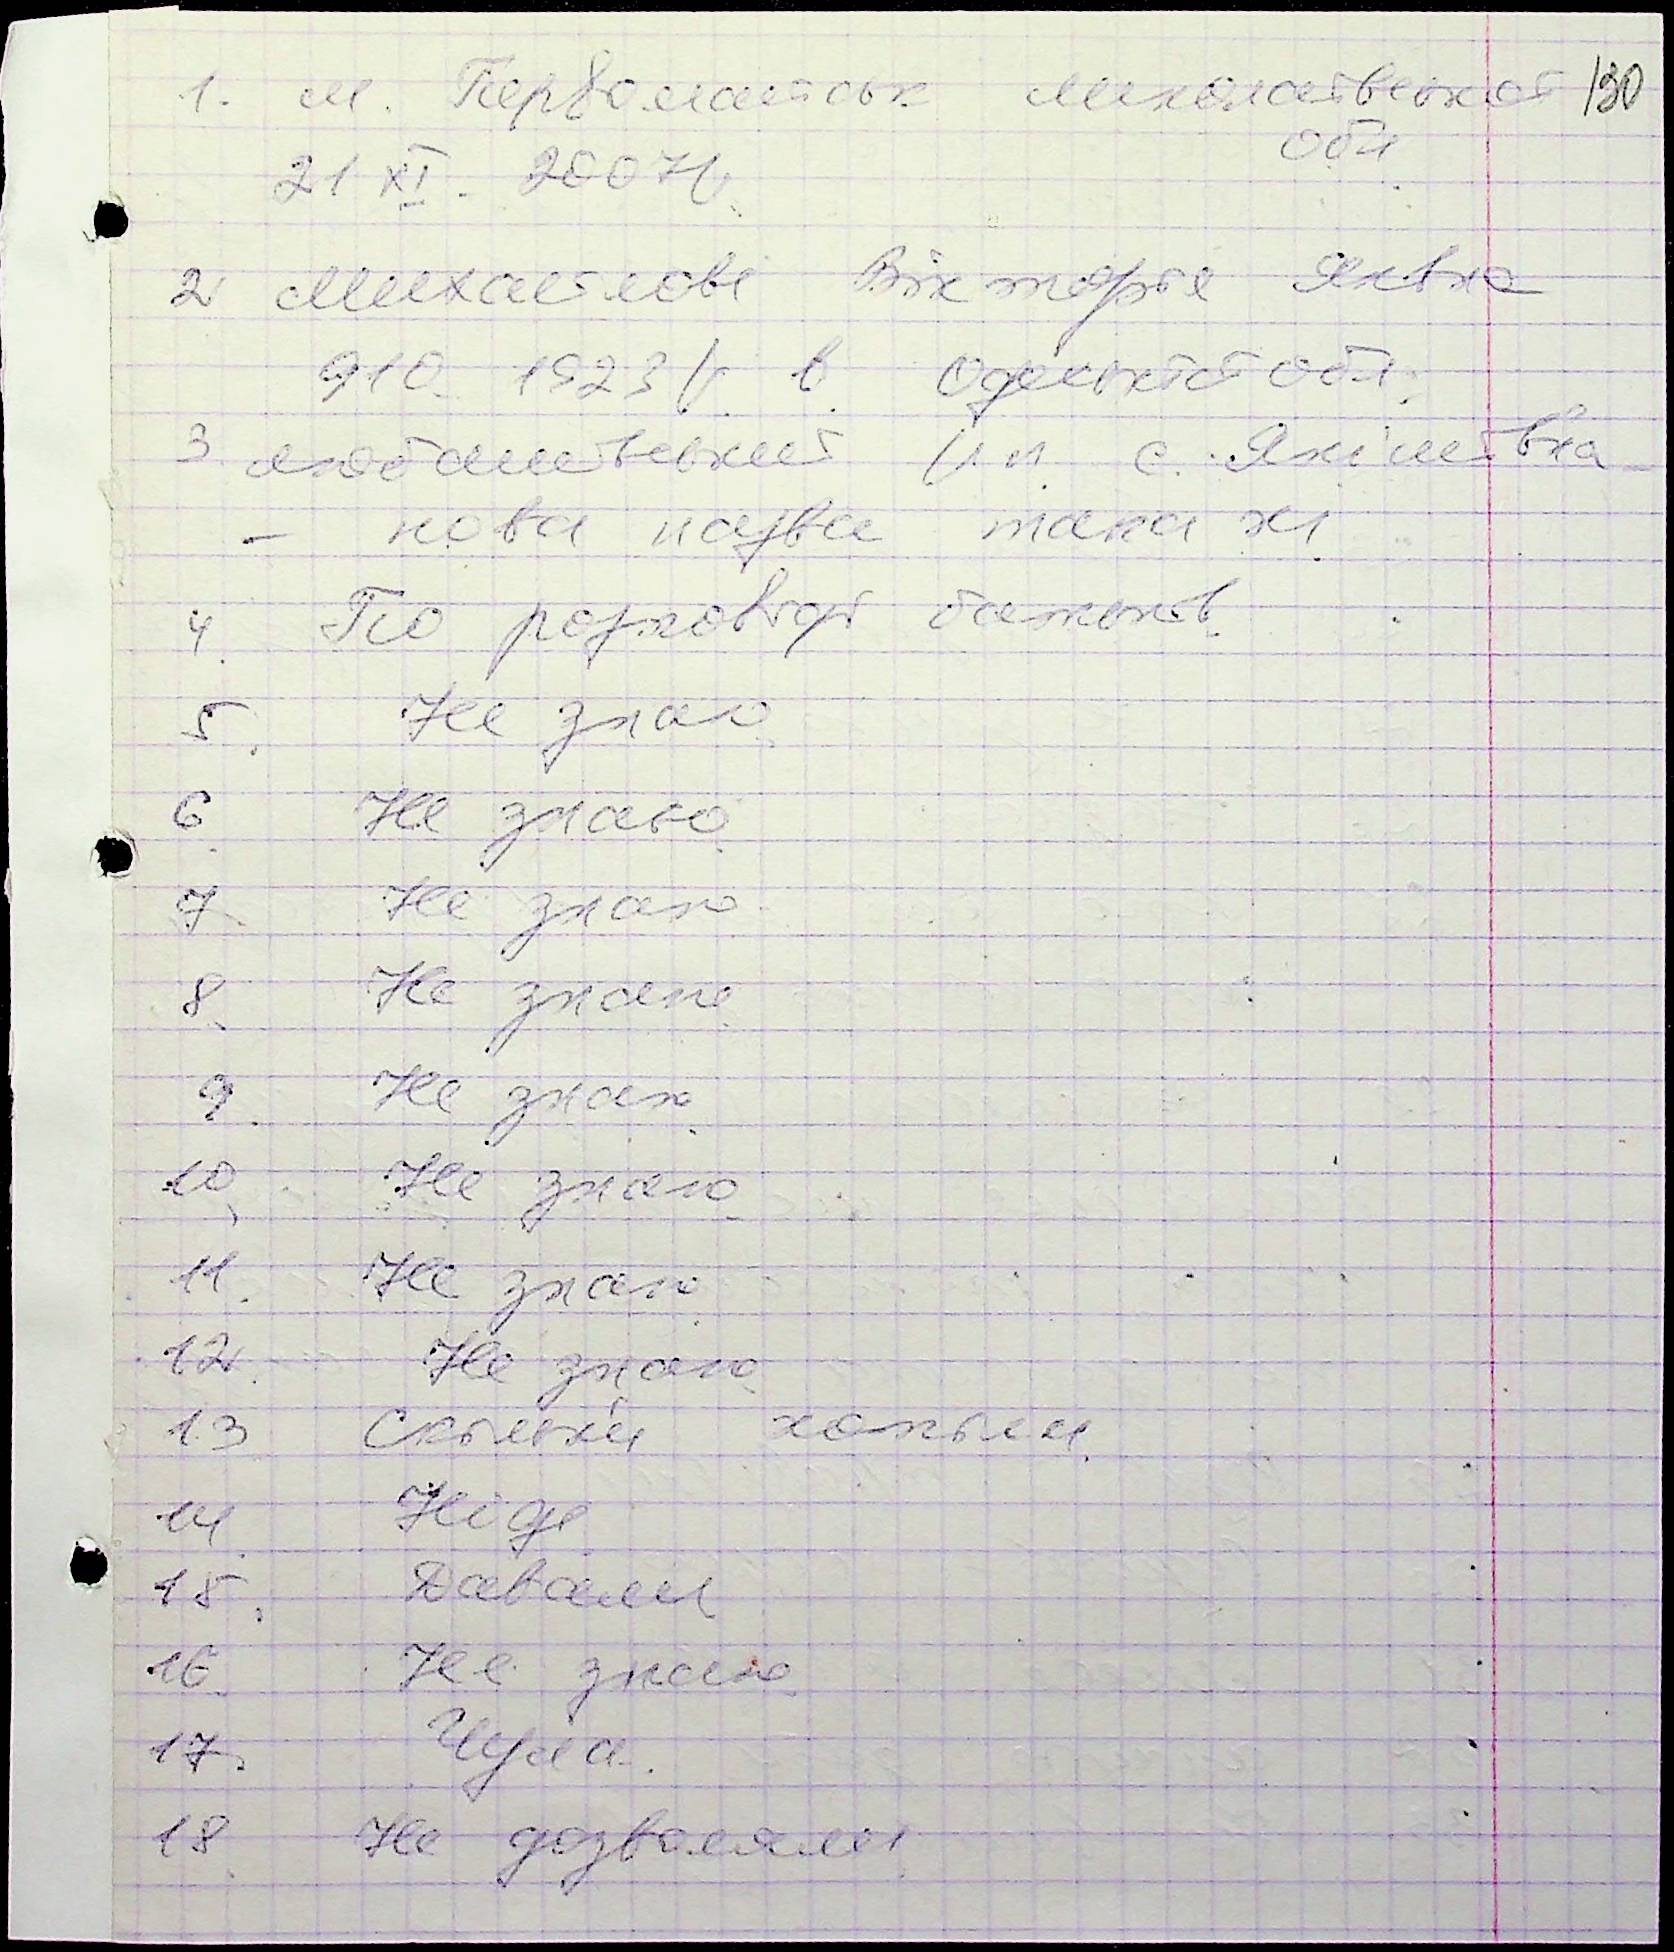 1. м. Первомайськ Миколаївської 130
обл.
21 XI. 2007 р.
2 Михайлові Вікторія Яківна
910. 1923 р. в Одеській обл.
3 р-н. с.
– нова назва така ж
4. По розповіді батьків.
5. Не знаю
6. Не знаю
7. Не знаю
8. Не знаю
9. Не знаю
10. Не знаю
11. Не знаю
12. Не знаю
13 Скільки хотіли
14. Ніде
15. Давали
16. Не знаю
17. Чула.
18. Не дозволяли